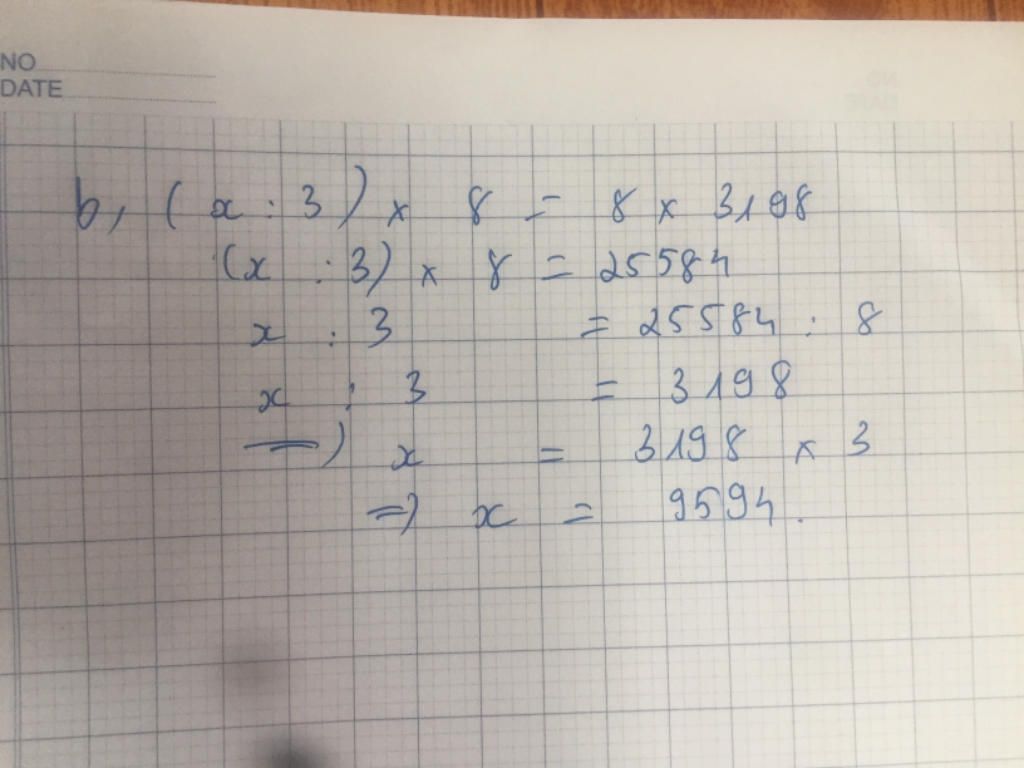 NO
DATE
b, (x : 3) x 8 = 8 x 3198
(x : 3) x 8 = 25584
x : 3 = 25584 : 8
x : 3 = 3198
=) x = 3198 x 3
=) x = 9594.